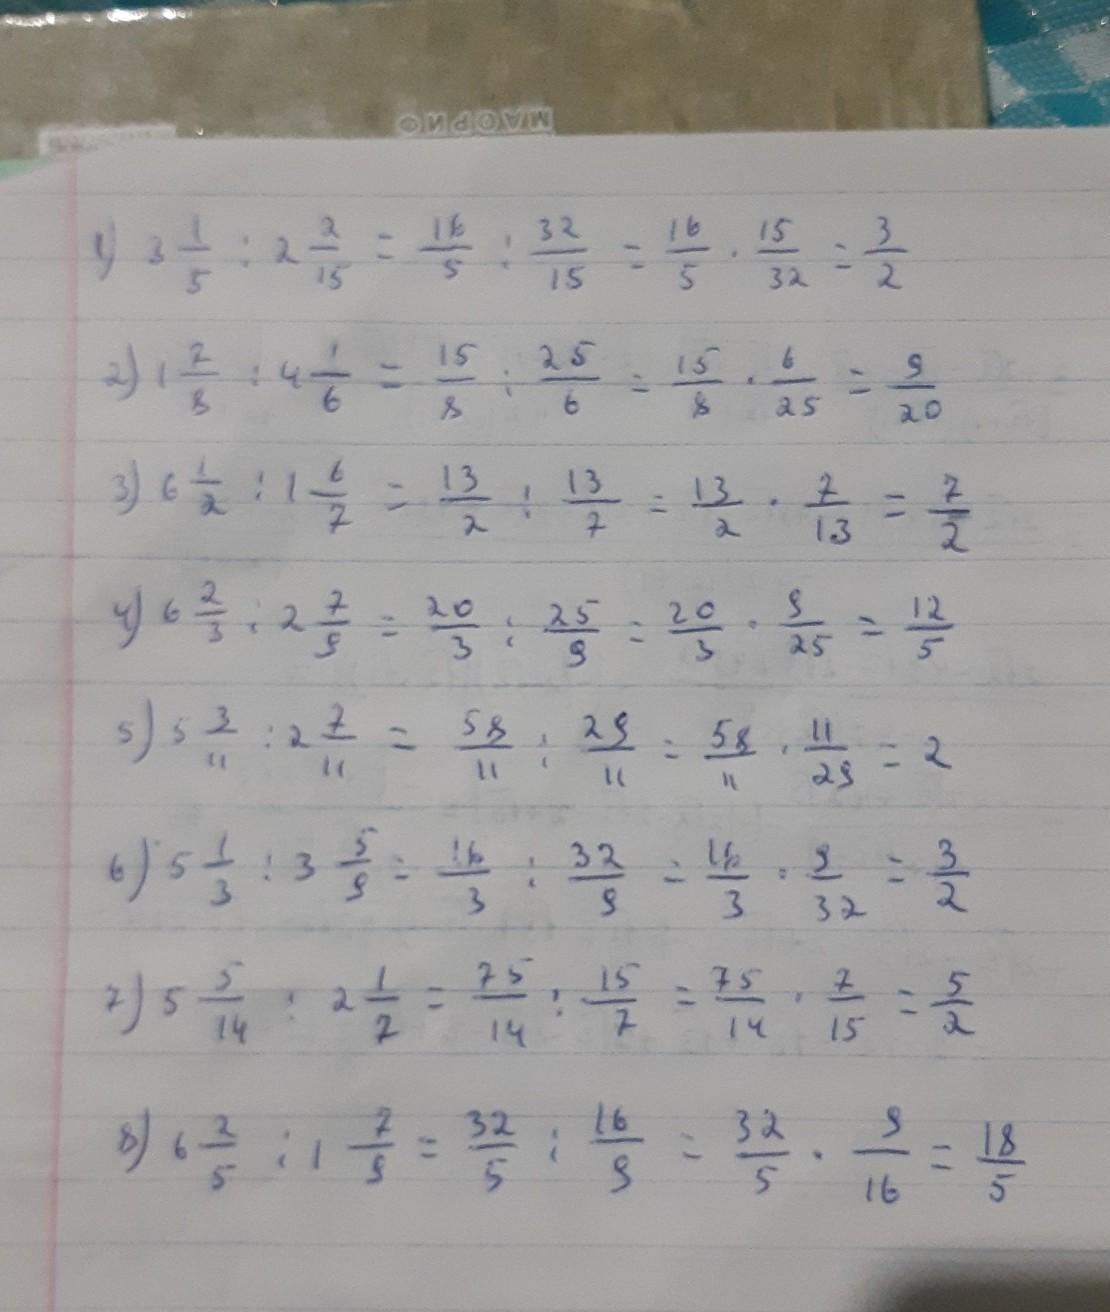 МАОРИФ
1) 3 1/5 : 2 2/15 = 16/5 : 32/15 = 16/5 · 15/32 = 3/2
2) 1 7/8 : 4 1/6 = 15/8 : 25/6 = 15/8 · 6/25 = 9/20
3) 6 1/2 : 1 6/7 = 13/2 : 13/7 = 13/2 · 7/13 = 7/2
4) 6 2/3 : 2 7/9 = 20/3 : 25/9 = 20/3 · 9/25 = 12/5
5) 5 3/11 : 2 7/11 = 58/11 : 29/11 = 58/11 · 11/29 = 2
6) 5 1/3 : 3 5/9 = 16/3 : 32/9 = 16/3 · 9/32 = 3/2
7) 5 5/14 : 2 1/7 = 75/14 : 15/7 = 75/14 · 7/15 = 5/2
8) 6 2/5 : 1 7/9 = 32/5 : 16/9 = 32/5 · 9/16 = 18/5